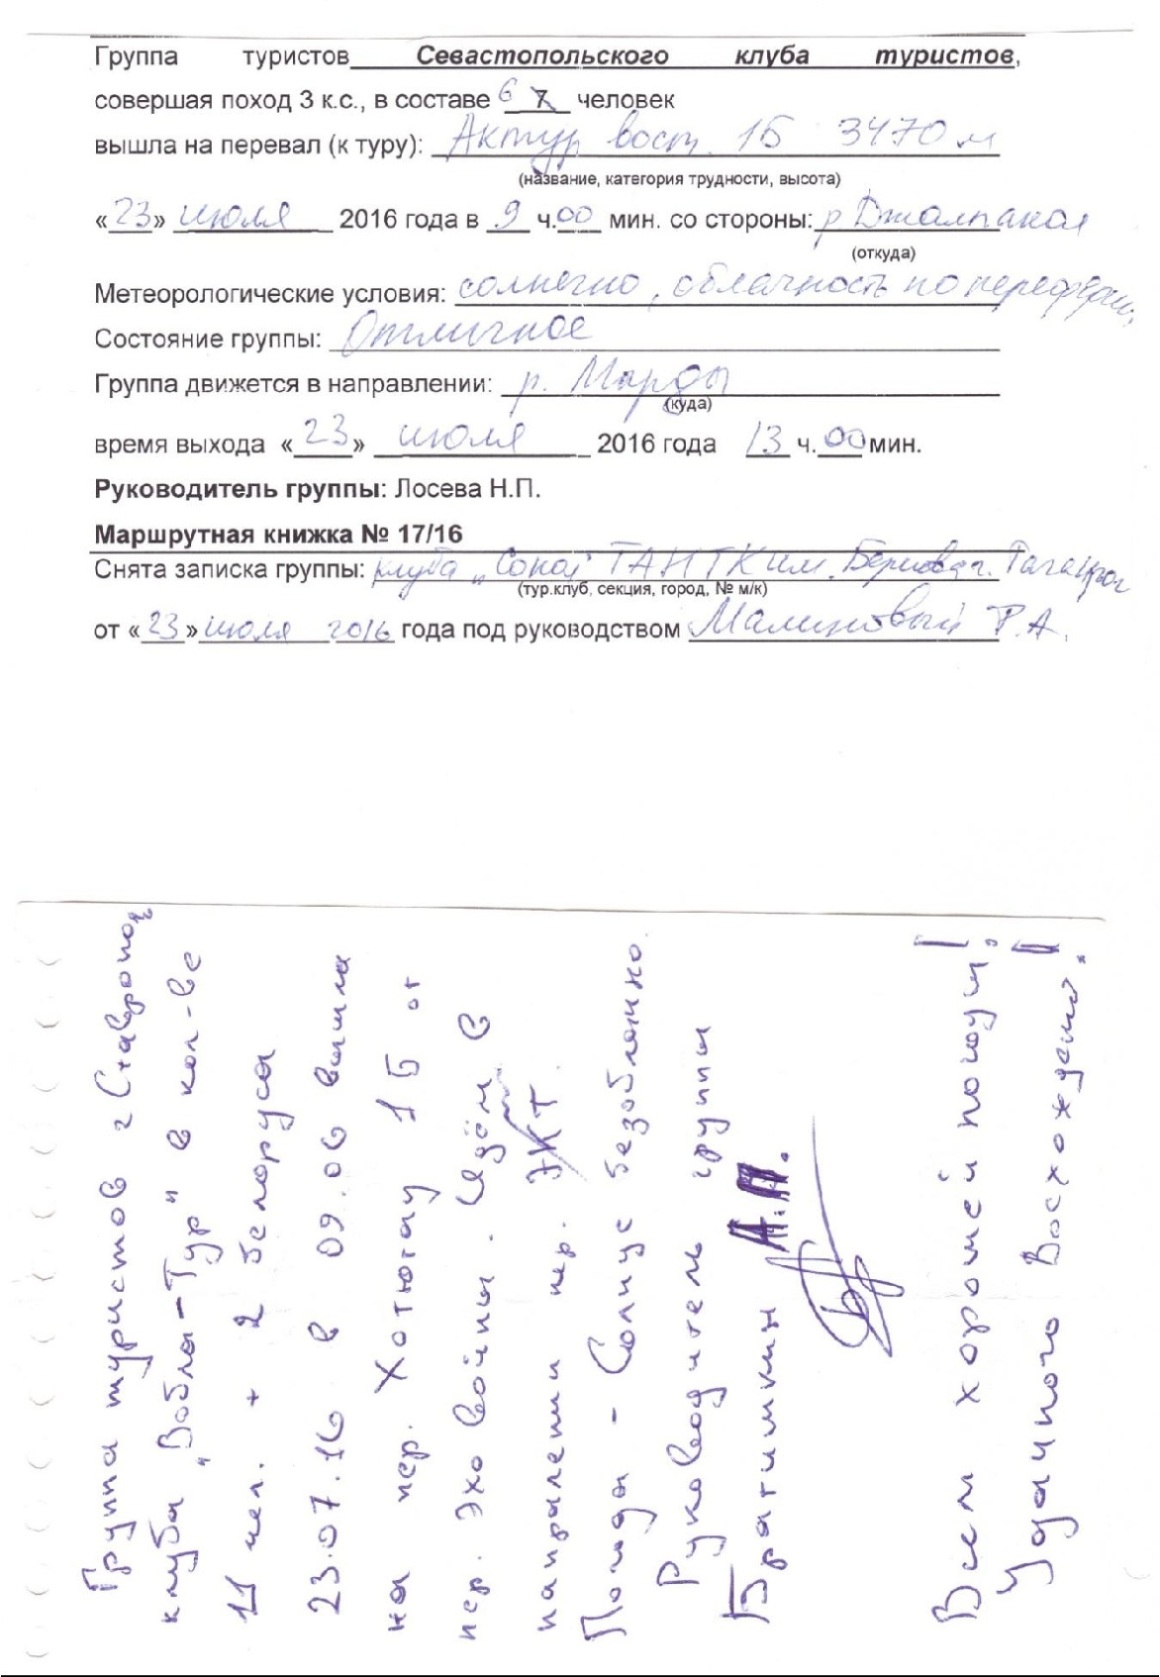 Группа туристов Севастопольского клуба туристов,
совершая поход 3 к.с., в составе 6 7 человек
вышла на перевал (к туру): Актур вост. 1Б 3470 м
(название, категория трудности, высота)
«23» июля 2016 года в 9 ч.00 мин. со стороны: р Джалпакол
(откуда)
Метеорологические условия: солнечно, облачность по
Состояние группы: Отличное
Группа движется в направлении: р. Марды
(куда)
время выхода «23» июля 2016 года 13 ч.00 мин.
Руководитель группы: Лосева Н.П.
Маршрутная книжка № 17/16
Снята записка группы: клуба „Сокол" ТАНТК им. г. Таганрог
(тур.клуб, секция, город, № м/к)
от «23» июля 2016 года под руководством Малиновый Р.А.
Группа туристов г Ставрополь
клуба „Вобла-Тур" в кол-ве
11 чел. + 2 белоруса
23.07.16 в 09.06 вышла
на пер. Хотютау 1Б от
пер. Эхо Войны. Идём в
направлении пер. ЭКТ.
Погода - Солнце безоблачно.
Руководитель группы
Братишкин А.П.
Всем хорошей погоды!
Удачного Восхождения!